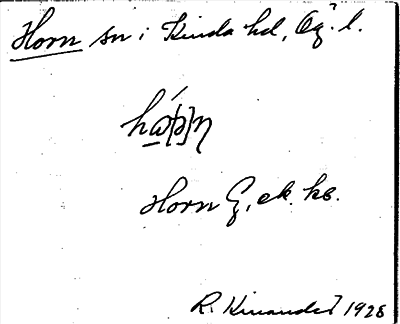 Horn sn i Kinda hd, Ög. l.
Horn G, ek. kb.
R. Kinander 1928